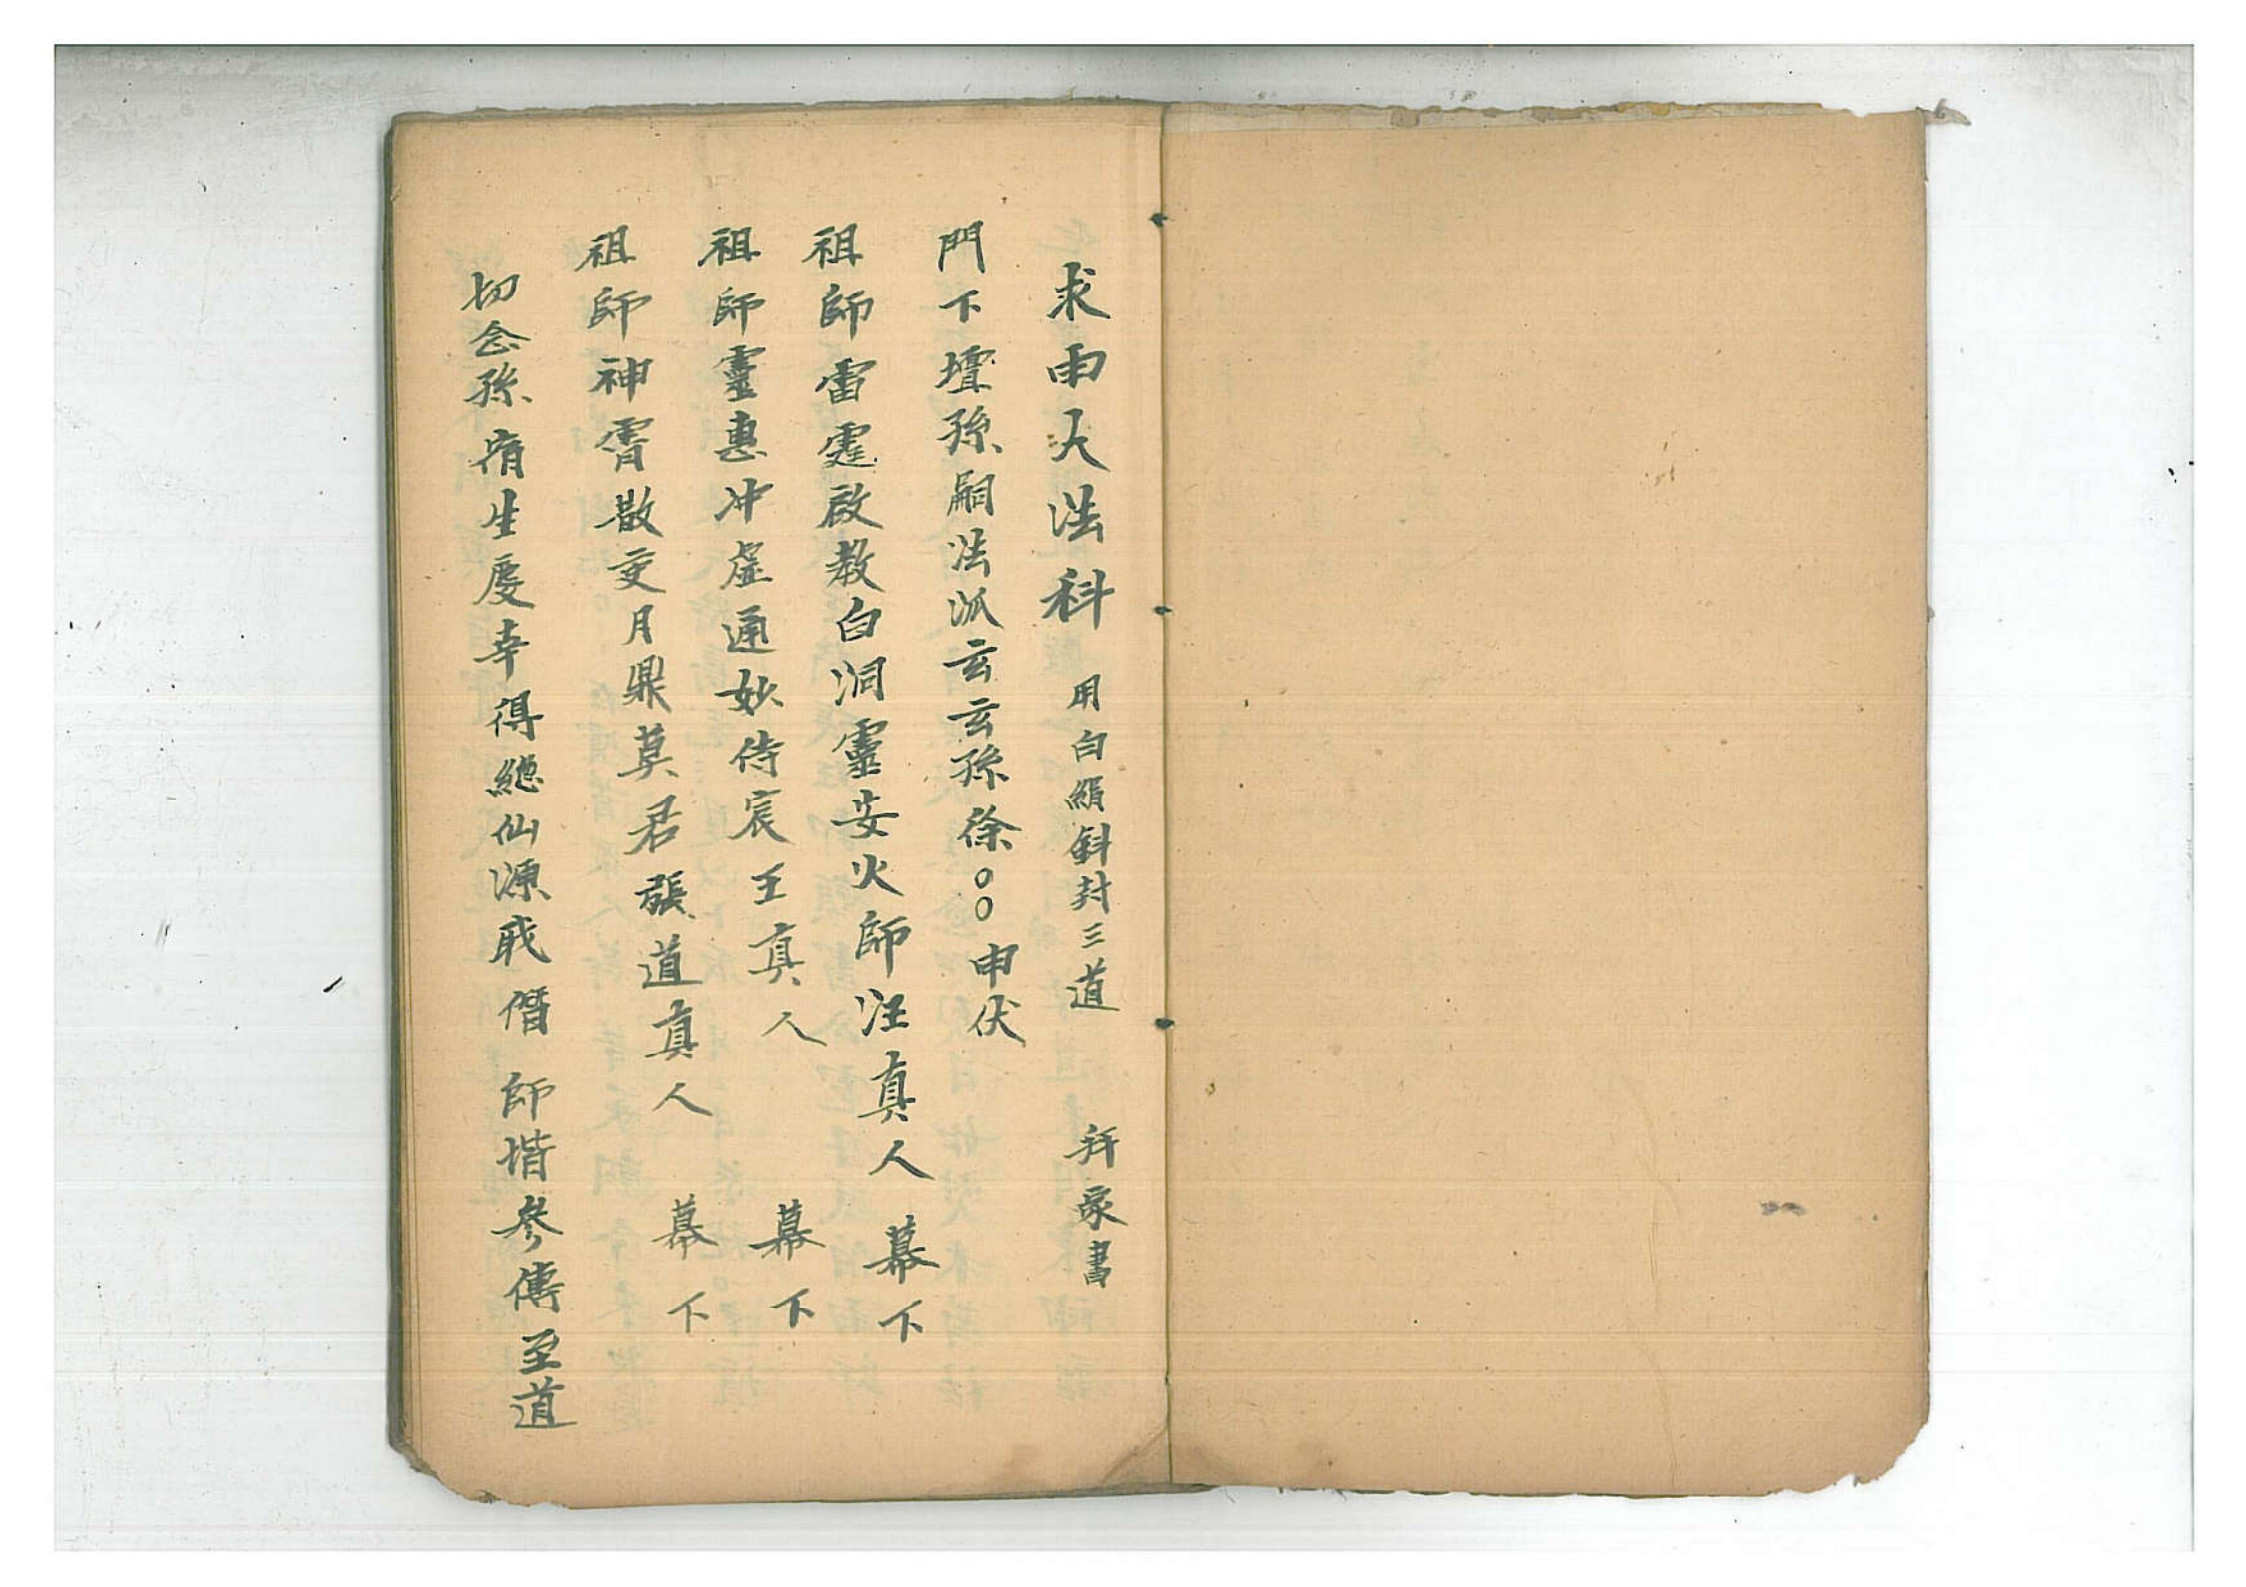 求雨大法科 用白絹斜封三道 拜家書
門下壇孫嗣法派玄玄孫徐〇〇申伏
祖師雷霆啟教白洞靈安火師汪真人 幕下
祖師靈惠冲虛通妙侍宸王真人 幕下
祖師神霄散吏月鼎莫君張道真人 幕下
切念孫 生慶幸得 仙源 僭 師堦參傳至道